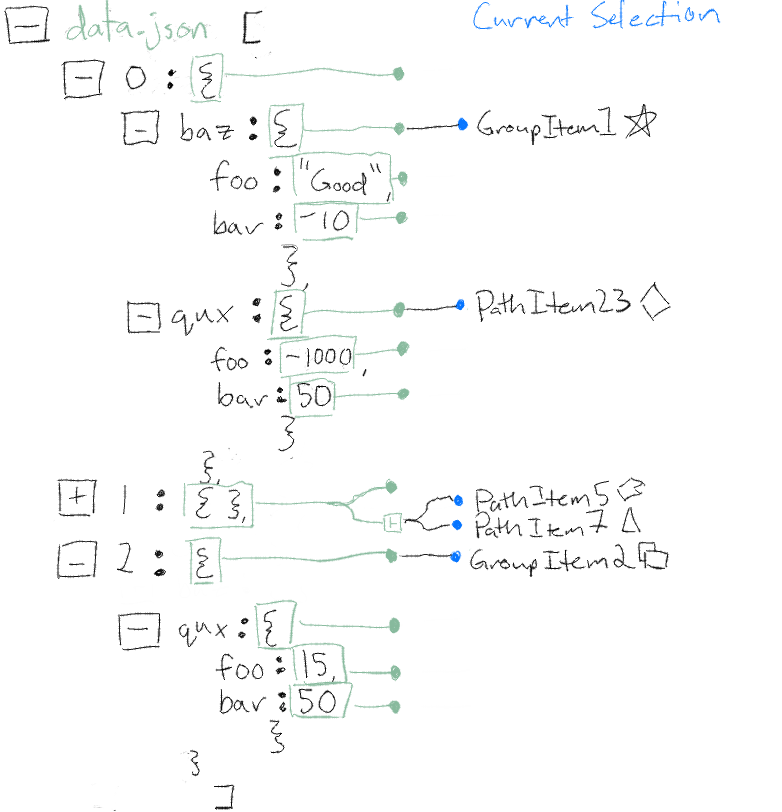 data.json [ Current Selection
0 : {
baz : { GroupItem1
foo : "Good",
bar : -10
},
qux : { PathItem23
foo : -1000,
bar : 50
}
},
1 : { }, PathItem5
PathItem7
2 : { GroupItem2
qux : {
foo : 15,
bar : 50
}
}
]